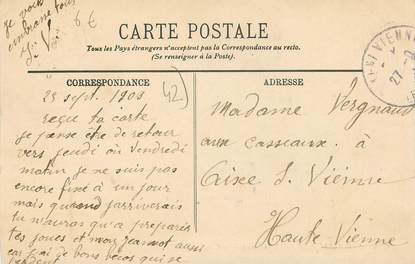 je vous
embrasse tous
6 €
CARTE POSTALE
Tous les Pays étrangers n'acceptent pas la Correspondance au recto.
(Se renseigner à la Poste).
CORRESPONDANCE
ADRESSE
VIENNE
27
23 sept. 1908
42
reçu ta carte
je pense être de retour
vers jeudi où vendredi
matin je ne suis pas
encore fixé à un jour
mais quand j'arriverais
tu n'auras qu'a préparer
tes joues et mon jeannot aussi
car j'ai je bons becos qui se
perdent
Madame Vergnaud
aux casseaux à
Aixe s. Vienne
Haute-Vienne